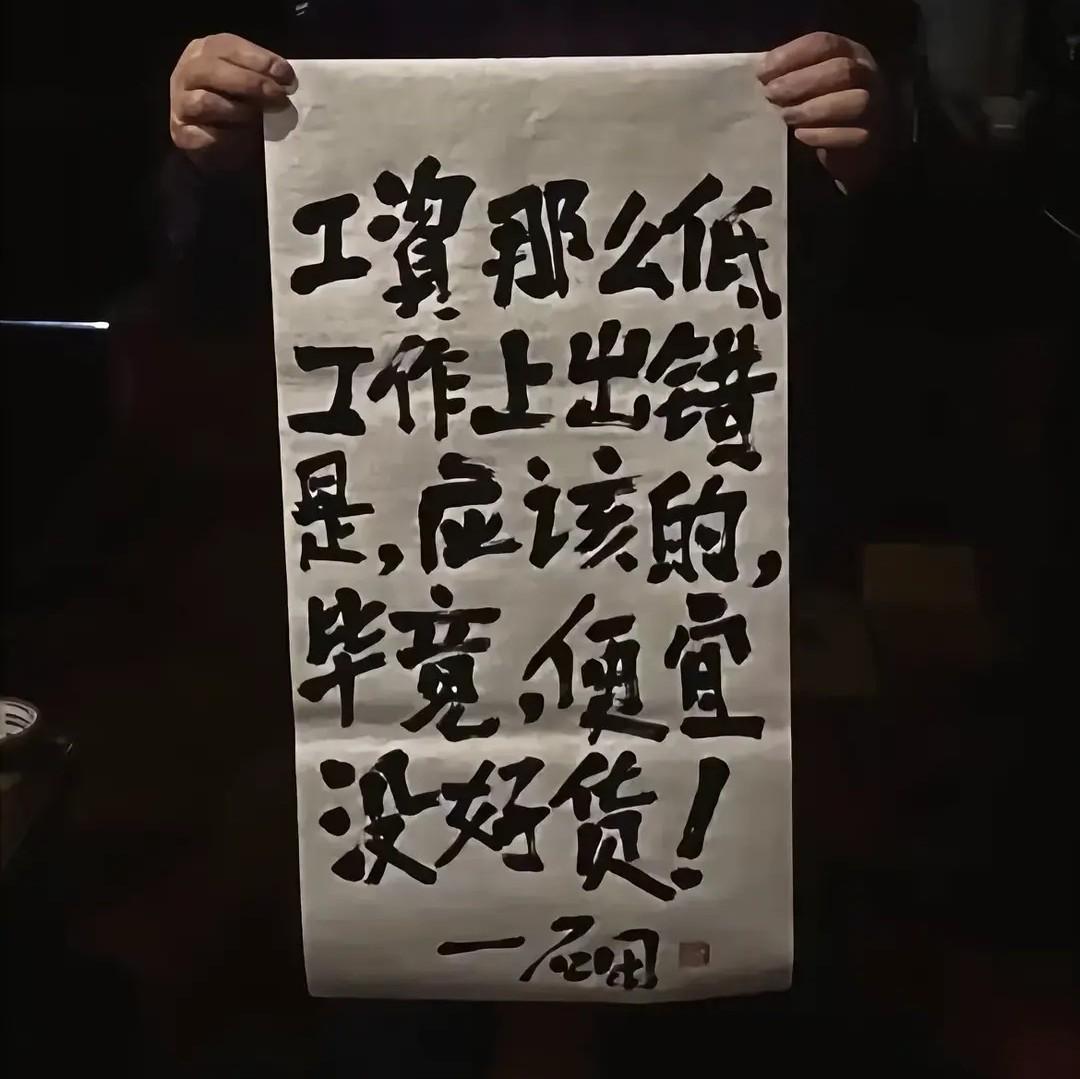 工資那么低
工作上出错
是,应该的,
毕竟,便宜
没好货!
一石田